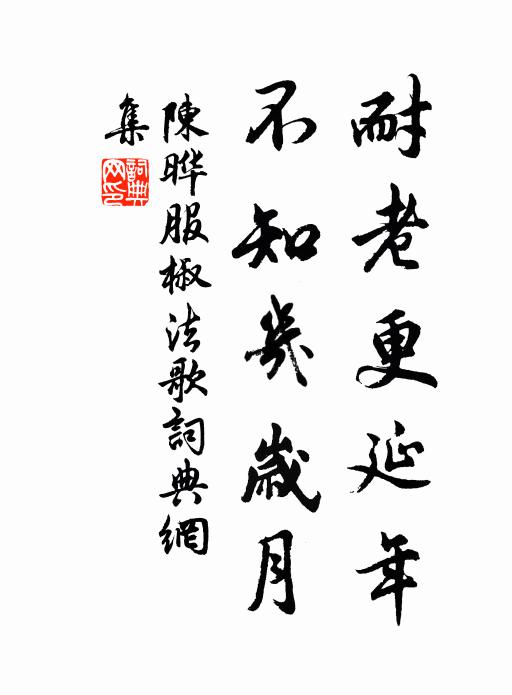 耐老更延年
不知幾歲月
陳晔服椒法歌詞典網
集
詞典網印